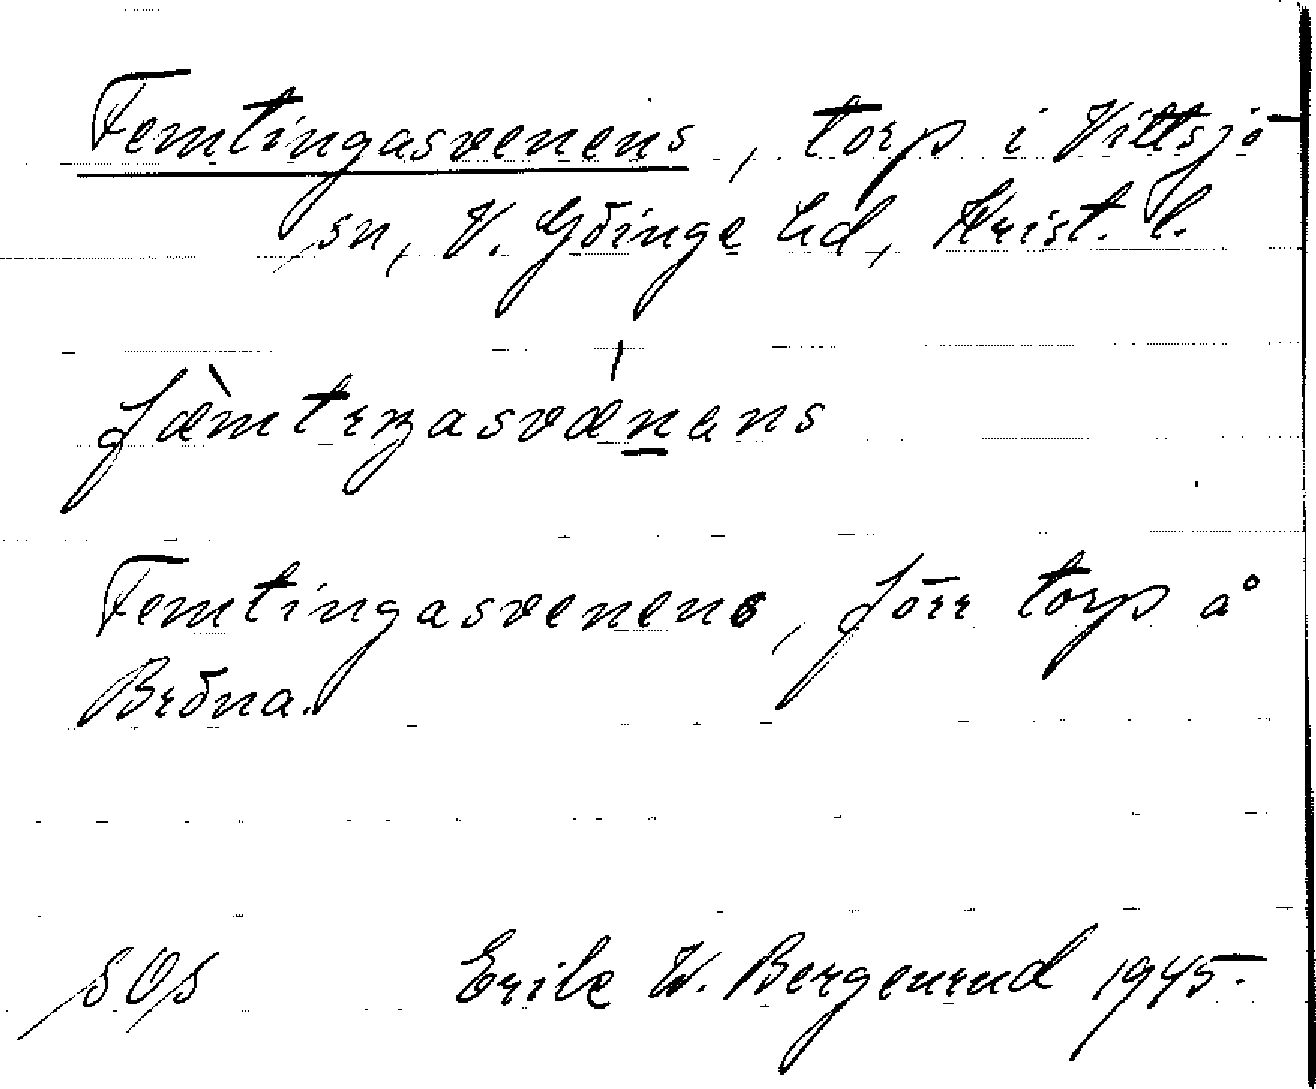 Femtingasvenens, torp i Vittsjö
sn, V. Göinge hd, Krist. l.
fæ̀mtɪŋasvǽn̲ans
Femtingasvenens, förr torp å
Bröna.
SOS Erik W. Bergenrud 1945.